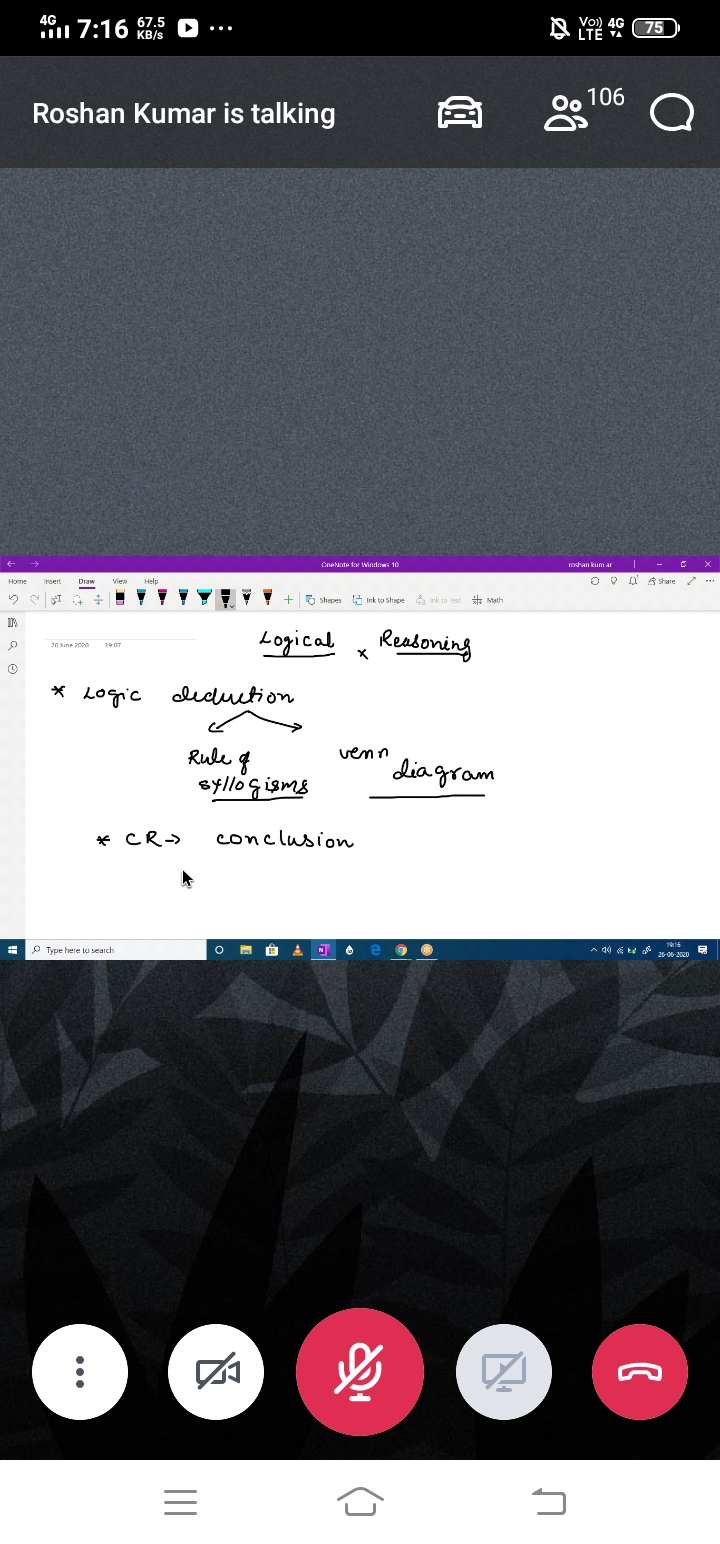 4G 7:16 67.5 KB/s ... Vo) LTE 4G 75
Roshan Kumar is talking 106
OneNote for Windows 10 roshan kum ar
Home Insert Draw View Help Share
Shapes Ink to Shape Ink to Text Math
26 June 2020 19:07
Logical x Reasoning
* Logic deduction
Rule of syllogisms
venn diagram
* CR → conclusion
Type here to search 19:16
26-06-2020